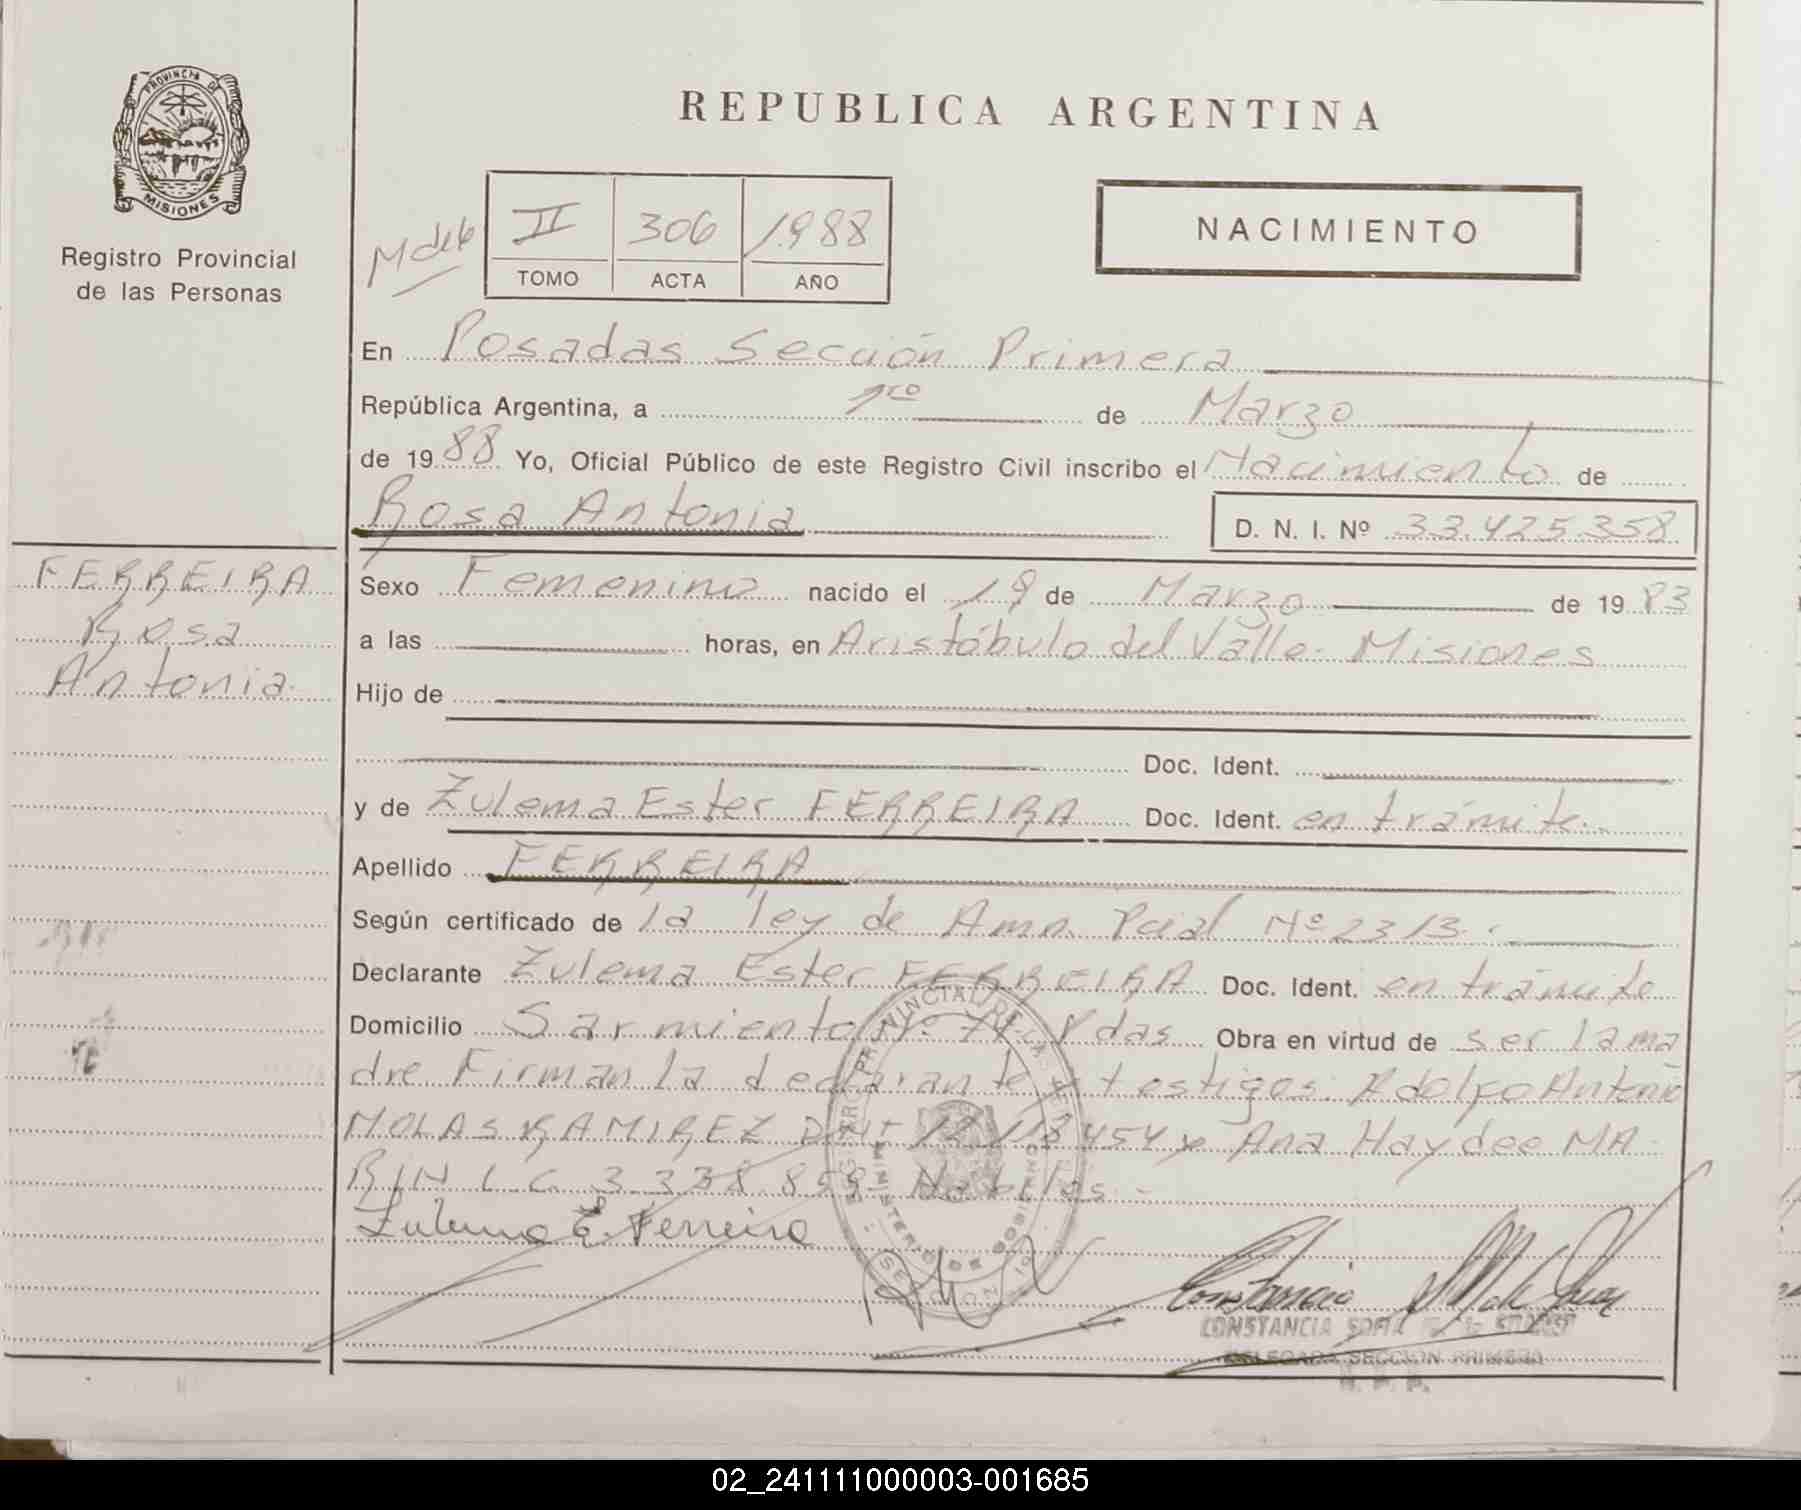 PROVINCIA DE
MISIONES
Registro Provincial
de las Personas
REPUBLICA ARGENTINA
II 306 1988
TOMO ACTA AÑO
NACIMIENTO
En Posadas Sección Primera
República Argentina, a 1ro de Marzo
de 1988 Yo, Oficial Público de este Registro Civil inscribo el Nacimiento de
Rosa Antonia
D. N. I. Nº 33.425.358
FERREIRA
Rosa
Antonia
Sexo Femenino nacido el 19 de Marzo de 1983
a las horas, en Aristóbulo del Valle. Misiones
Hijo de
Doc. Ident.
y de Zulema Ester FERREIRA Doc. Ident. en trámite.
Apellido FERREIRA
Según certificado de la ley de Amn. Pcial Nº 2313.
Declarante Zulema Ester FERREIRA Doc. Ident. en trámite
Domicilio Sarmiento Nº Pdas Obra en virtud de ser la ma
dre Firman la declarante y testigos: Adolfo Antonio
MOLAS RAMIREZ DNI 454 y Ana Haydee MA
RIN L C 3.338.859 Habiles.-
Zulema E. Ferreira
CONSTANCIA SOFIA
DELEGADA SECCION PRIMERA
R. P. P.
02_241111000003-001685